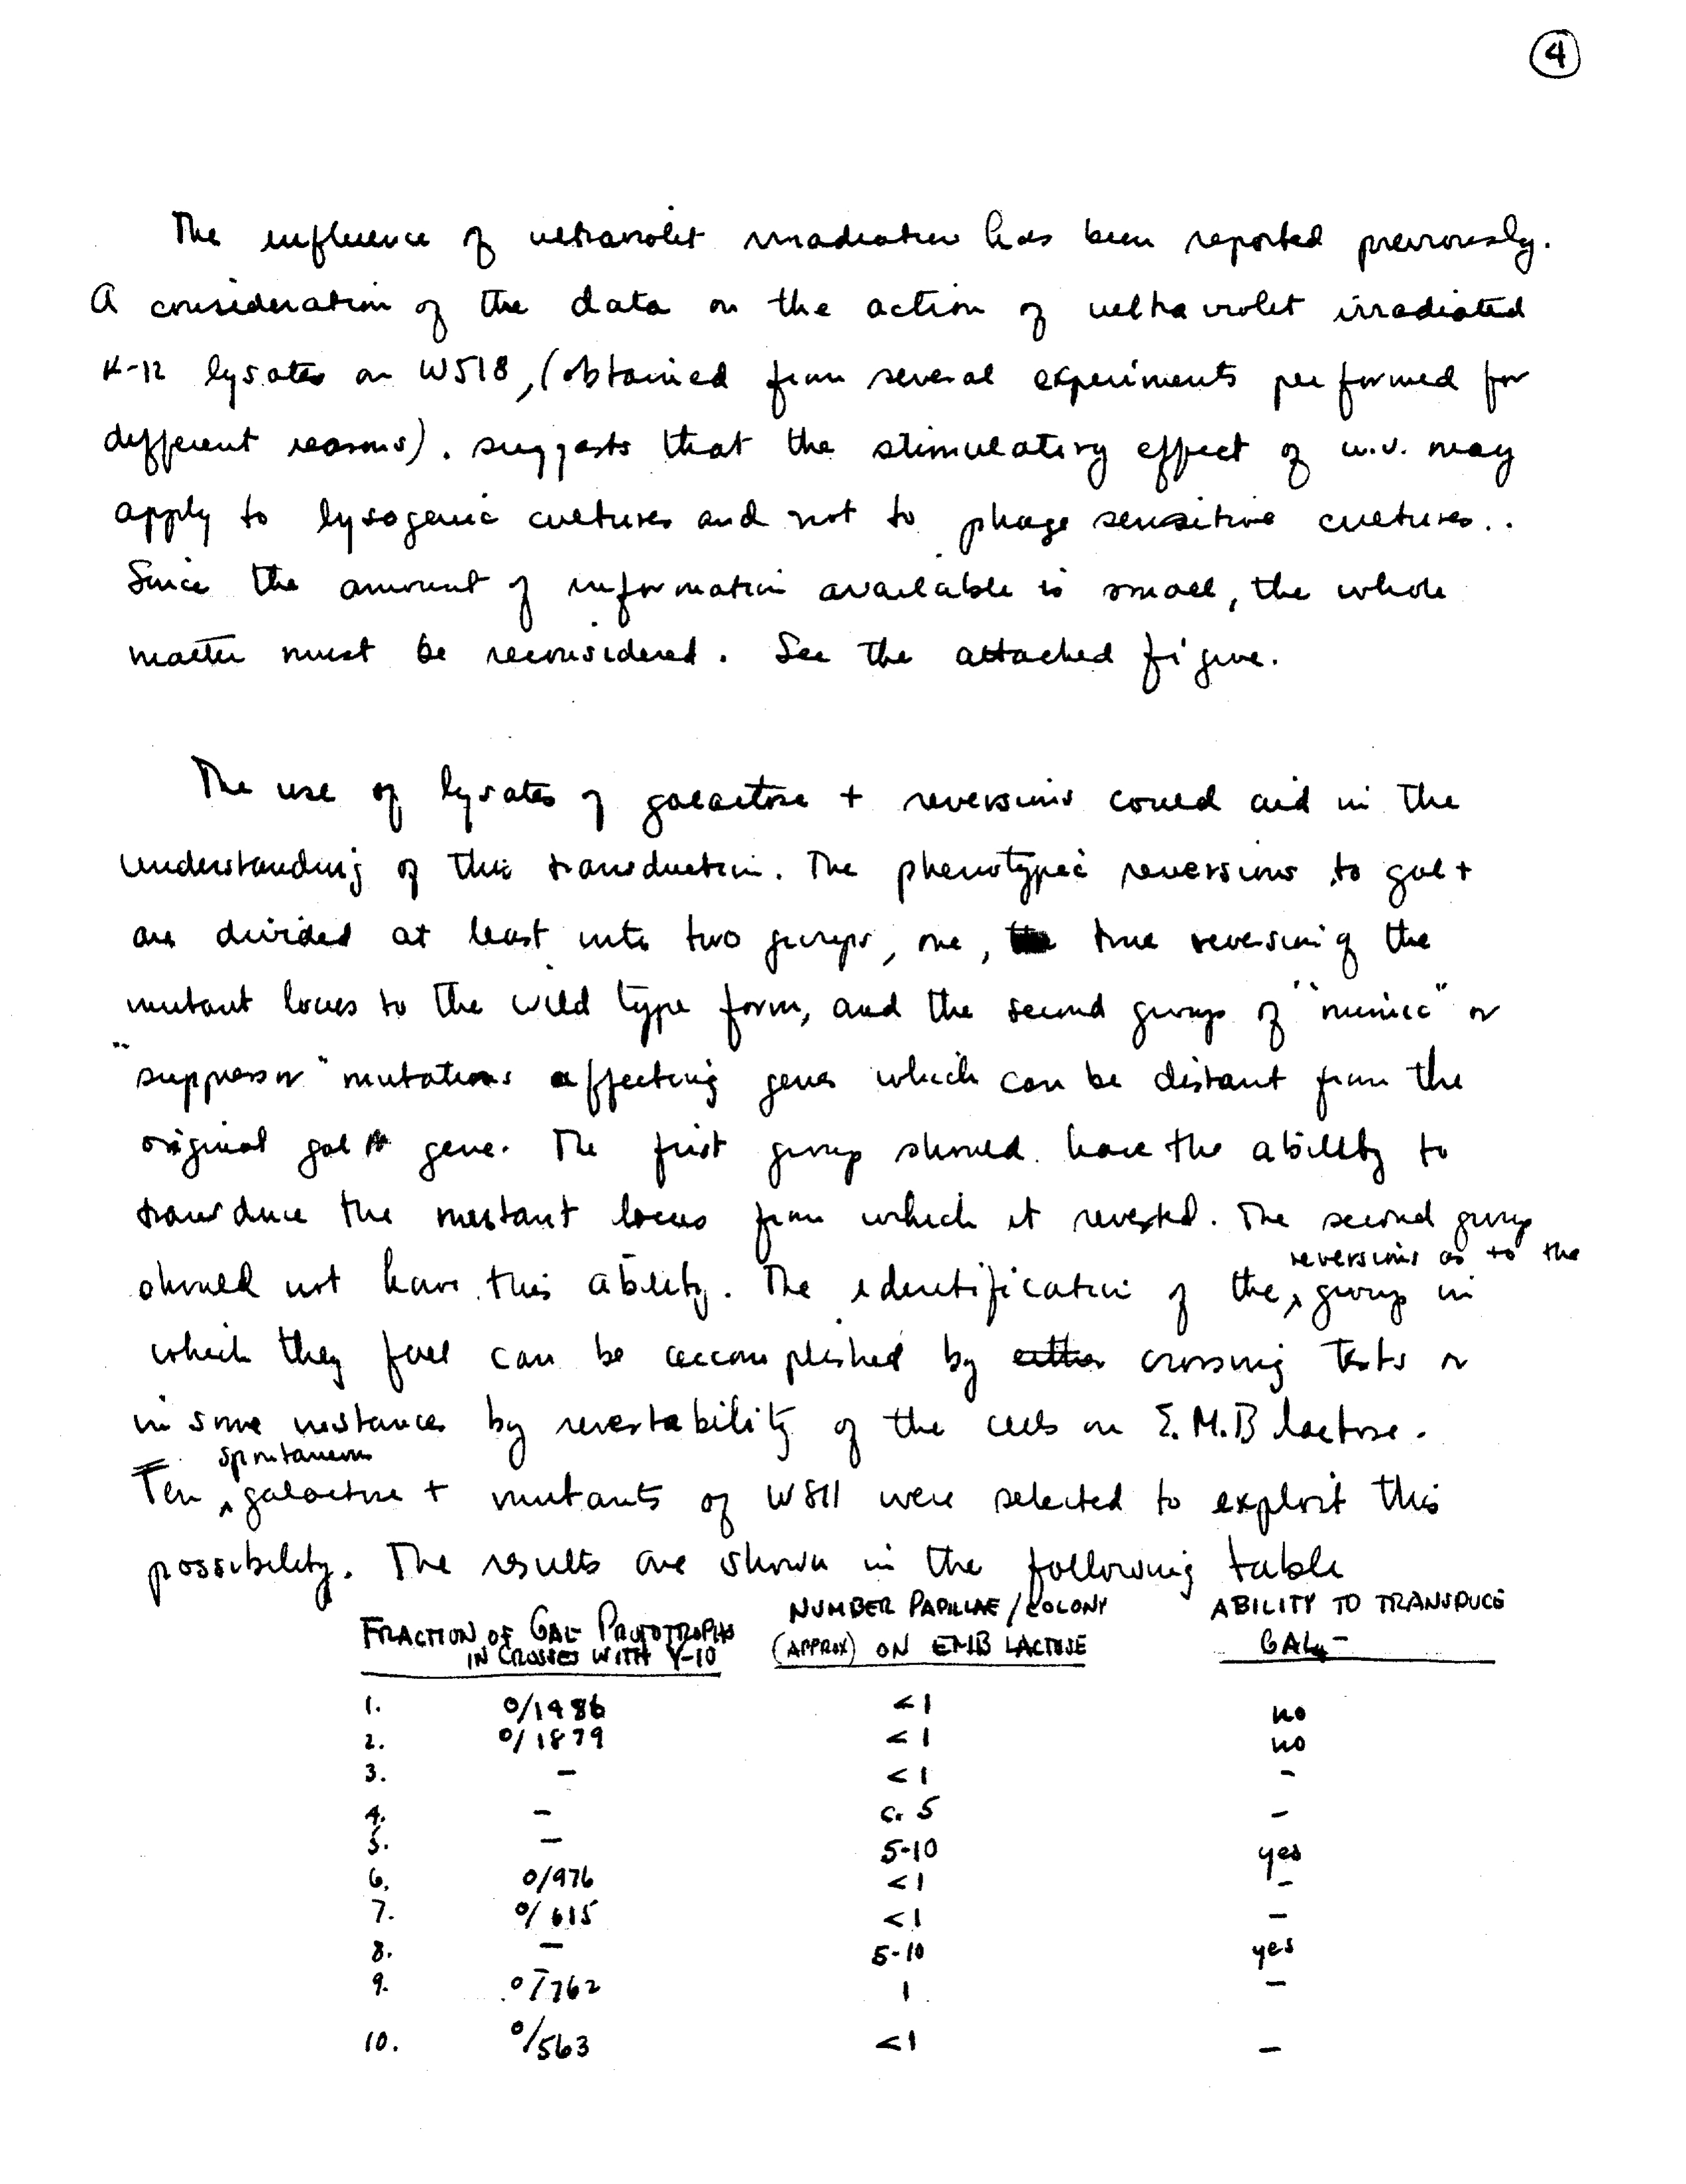 4
The influence of ultraviolet irradiation has been reported previously.
A consideration of the data on the action of ultraviolet irradiated
K-12 lysates on W518, (obtained from several experiments performed for
different reasons). suggests that the stimulatory effect of u.v. may
apply to lysogenic cultures and not to phage sensitive cultures..
Since the amount of information available is small, the whole
matter must be reconsidered. See the attached figure.
The use of lysates of galactose + reversions could aid in the
understanding of this transduction. The phenotypic reversions to gal+
are divided at least into two groups, one, true reversion of the
mutant locus to the wild type form, and the second group of "mimic" or
"suppressor" mutations affecting genes which can be distant from the
original gal gene. The first group should have the ability to
transduce the mutant locus from which it reverted. The second group
should not have this ability. The identification of the reversions as to the group in
which they fall can be accomplished by either crossing tests or
in some instances by revertability of the cells on E.M.B lactose.
Ten spontaneous galactose + mutants of W811 were selected to exploit this
possibility. The results are shown in the following table
FRACTION OF GAL- PROTOTROPHS IN CROSSES WITH Y-10 NUMBER PAPILLAE/COLONY (APPROX) ON EMB LACTOSE ABILITY TO TRANSDUCE GAL4-
1. 0/1486 <1 no
2. 0/1879 <1 no
3. - <1 -
4. - c. 5 -
5. - 5-10 yes
6. 0/976 <1 -
7. 0/615 <1 -
8. - 5-10 yes
9. 0/762 1 -
10. 0/563 <1 -